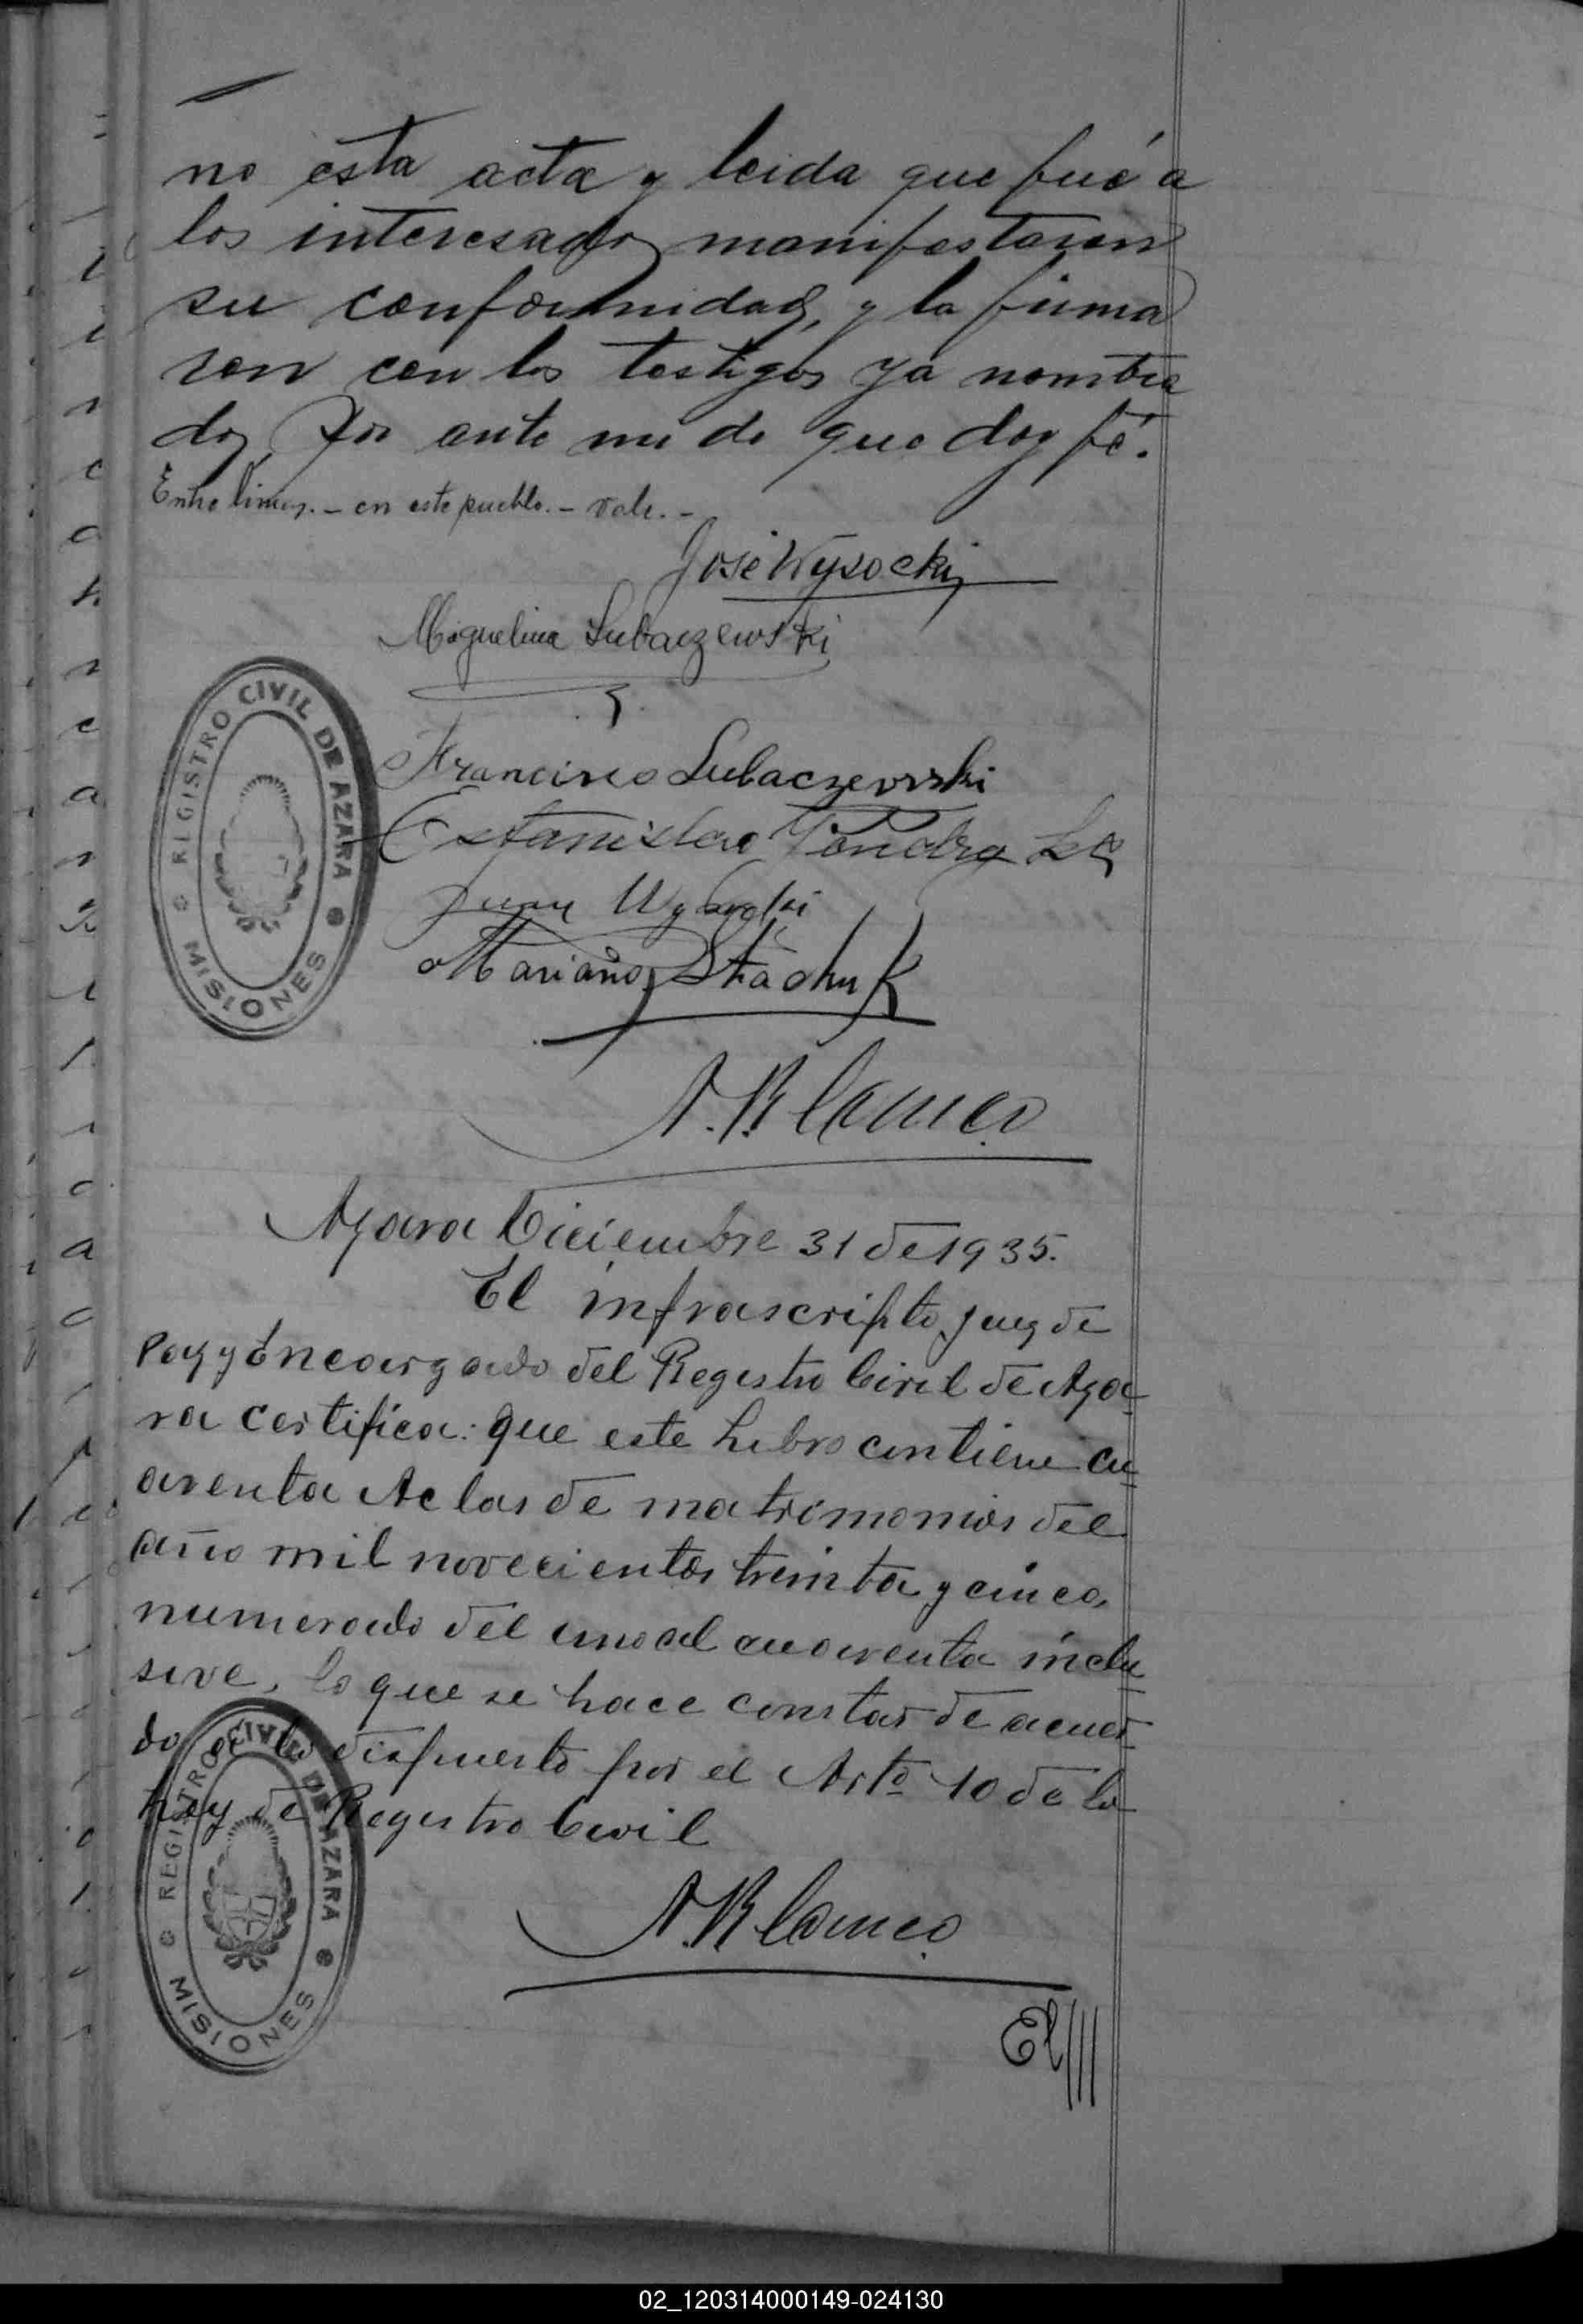 no esta acta y leida que fué a
los interesados manifestaron
su conformidad, y la firma
ron con los testigos ya nombra
dos, por ante mi de que doy fé.
Entre lineas.- en este pueblo.- vale.-
José Wysocki
Miguelina Lubaczewski
Francisco Lubaczewski
Estanislao
Juan Wysocki
Mariano Stachuk
REGISTRO CIVIL DE AZARA
MISIONES
A. Blanco
Azara Diciembre 31 de 1935.
El infrascripto, Juez de
Paz y Encargado del Registro Civil de Aza
ra certifica: que este Libro contiene cu
arenta Actas de matrimonios del
año mil novecientos treinta y cinco,
numerado del uno al cuarenta inclu
sive, lo que se hace constar de acuer
do a lo dispuesto por el Artº 10 de la
Ley de Registro Civil
REGISTRO CIVIL DE AZARA
MISIONES
A. Blanco
02_120314000149-024130